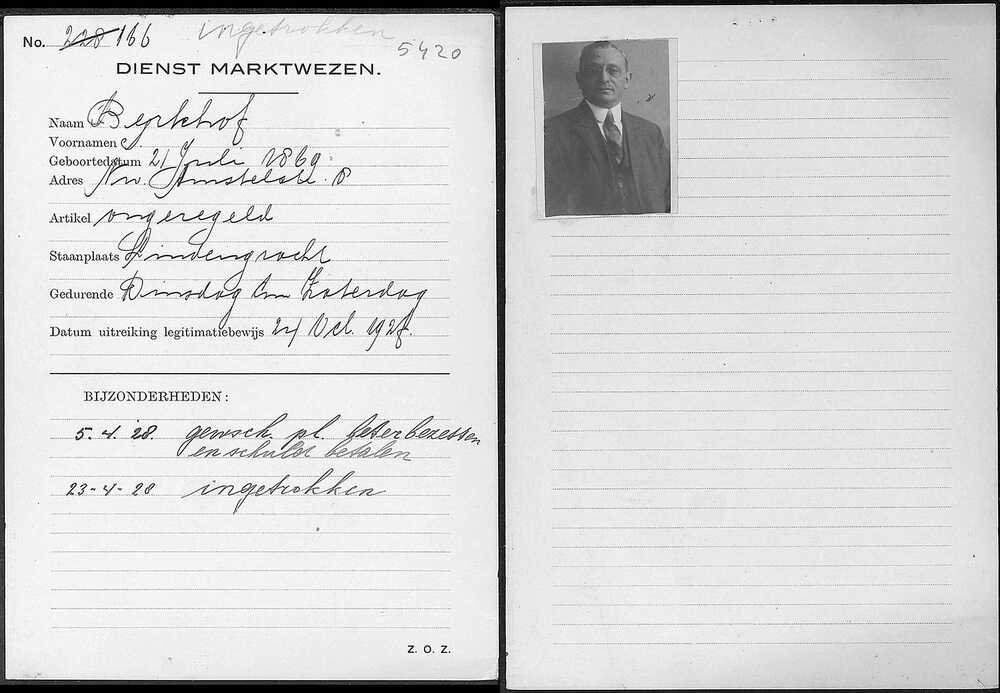 No. 228 166 ingetrokken 5420
DIENST MARKTWEZEN.
Naam Byrkhof
Voornamen C.
Geboortedatum 21 Juli 1869
Adres Nw. Amstelstr. 8
Artikel ongeregeld
Staanplaats Lindengracht
Gedurende Dinsdag t/m Zaterdag
Datum uitreiking legitimatiebewijs 24 Oct. 192
BIJZONDERHEDEN:
5.4.28. gewsch. pl. beter bezetten
en schuld betalen
23-4-28 ingetrokken
Z. O. Z.